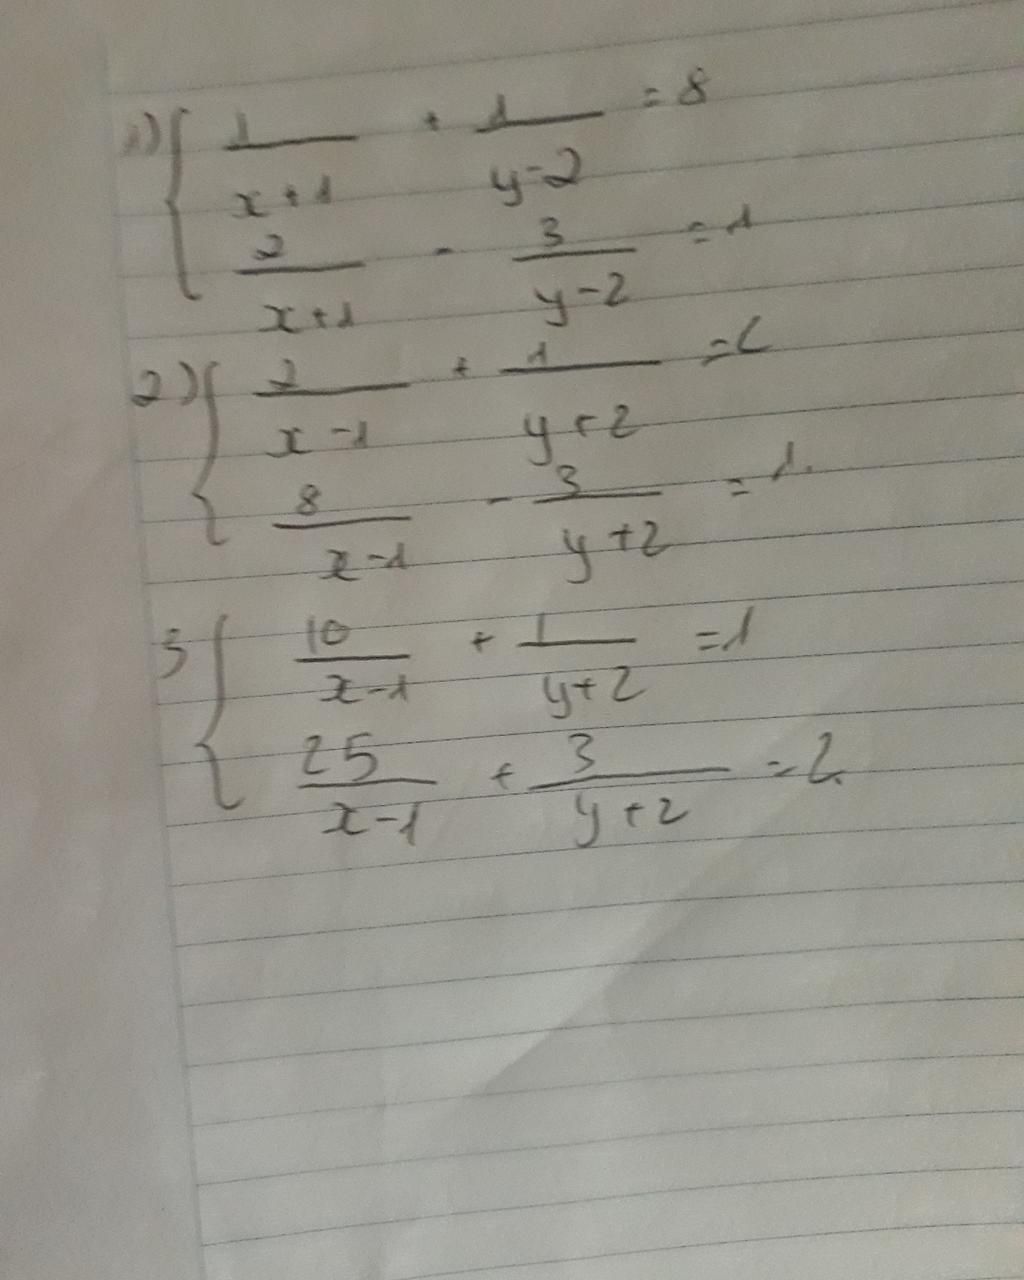 1) { 1/(x+1) + 1/(y-2) = 8
2/(x+1) - 3/(y-2) = 1
2) { 2/(x-1) + 1/(y+2) =
8/(x-1) - 3/(y+2) = 1.
3 { 10/(x-1) + 1/(y+2) = 1
25/(x-1) + 3/(y+2) = 2.